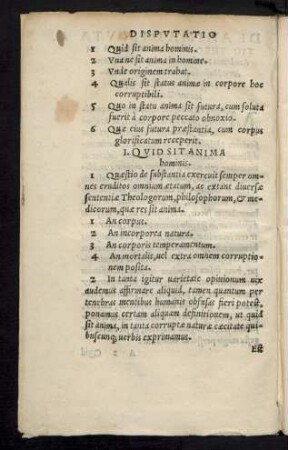 DISPVTATIO
1 Quid sit anima hominis.
2 Vnáne sit anima in homine.
3 Vnde originem trahat.
4 Qualis sit status animæ in corpore hoc
corruptibili.
5 Quo in statu anima sit futura, cum soluta
fuerit à corpore peccato obnoxio.
6 Quæ eius futura præstantia, cum corpus
glorificatum receperit.
1. QVID SIT ANIMA
hominis.
1 Quæstio de substantia exercuit semper om
nes eruditos omnium ætatum, ac extant diuersæ
sententiæ Theologorum, philosophorum, & me
dicorum, quæ res sit anima.
1 An corpus.
2 An incorporea natura.
3 An corporis temperamentum.
4 An mortalis, uel extra omnem corruptio
nem posita.
2 In tanta igitur uarietate opinionum uix
audemus affirmare aliquid, tamen quantum per
tenebras mentibus humanis obfusas fieri potest,
ponamus certam aliquam definitionem, ut quid
sit anima, in tanta corruptæ naturæ cæcitate qui
buscunq; uerbis exprimamus.
Est